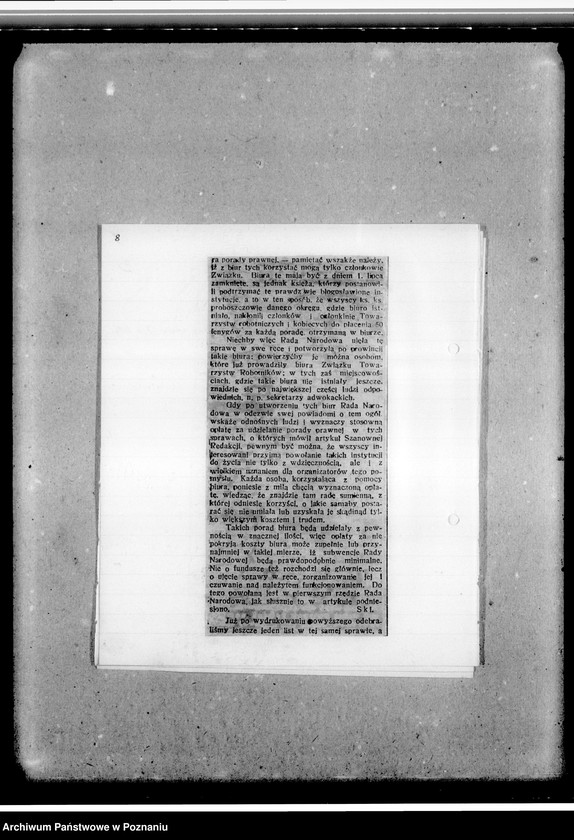 8
ra porady prawnej, — pamiętać wszakże należy,
iż z biur tych korzystać mogą tylko członkowie
Związku. Biura te mają być z dniem 1. lipca
zamknięte, są jednak księża, którzy postanowi-
li podtrzymać te prawdziwie błogosławione in-
stytucje, a to w ten sposób, że wszyscy ks. ks.
proboszczowie danego okręgu, gdzie biuro ist-
niało, nakłonili członków i członkinie Towa-
rzystw robotniczych i kobiecych do płacenia 50
fenygów za każdą poradę otrzymaną w biurze.
Niechby więc Rada Narodowa ujęła tę
sprawę w swe ręce i potworzyła po prowincji
takie biura; powierzyćby je można osobom,
które już prowadziły biura Związku Towa-
rzystw Robotników; w tych zaś miejscowoś-
ciach, gdzie takie biura nie istniały jeszcze,
znajdzie się po największej części ludzi odpo-
wiednich, n. p. sekretarzy adwokackich.
Gdy po utworzeniu tych biur Rada Naro-
dowa w odezwie swej powiadomi o tem ogół,
wskaże odnośnych ludzi i wyznaczy stosowną
opłatę za udzielanie porady prawnej w tych
sprawach, o których mówił artykuł Szanownej
Redakcji, pewnym być można, że wszyscy in-
teresowani przyjmą powołanie takich instytucji
do życia nie tylko z wdzięcznością, ale i z
wielkiem uznaniem dla organizatorów tego po-
mysłu. Każda osoba, korzystająca z pomocy
biura, poniesie z miłą chęcią wyznaczoną opła-
tę, wiedząc, że znajdzie tam radę sumienną, z
której odniesie korzyści, o jakie samaby posta-
rać się nie umiała lub uzyskała je skądinąd tyl-
ko większym kosztem i trudem.
Takich porad biura będą udzielały z pew-
nością w znacznej ilości, więc opłaty za nie
pokryją koszty biura może zupełnie lub przy-
najmniej w takiej mierze, iż subwencje Rady
Narodowej będą prawdopodobnie minimalne.
Nie o fundusze też rozchodzi się głównie, lecz
o ujęcie sprawy w ręce, zorganizowanie jej i
czuwanie nad należytem funkcjonowaniem. Do
tego powołaną jest w pierwszym rzędzie Rada
Narodowa, jak słusznie to w artykule podnie-
siono. Skt.
Już po wydrukowaniu powyższego odebra-
liśmy jeszcze jeden list w tej samej sprawie, a
Archiwum Państwowe w Poznaniu